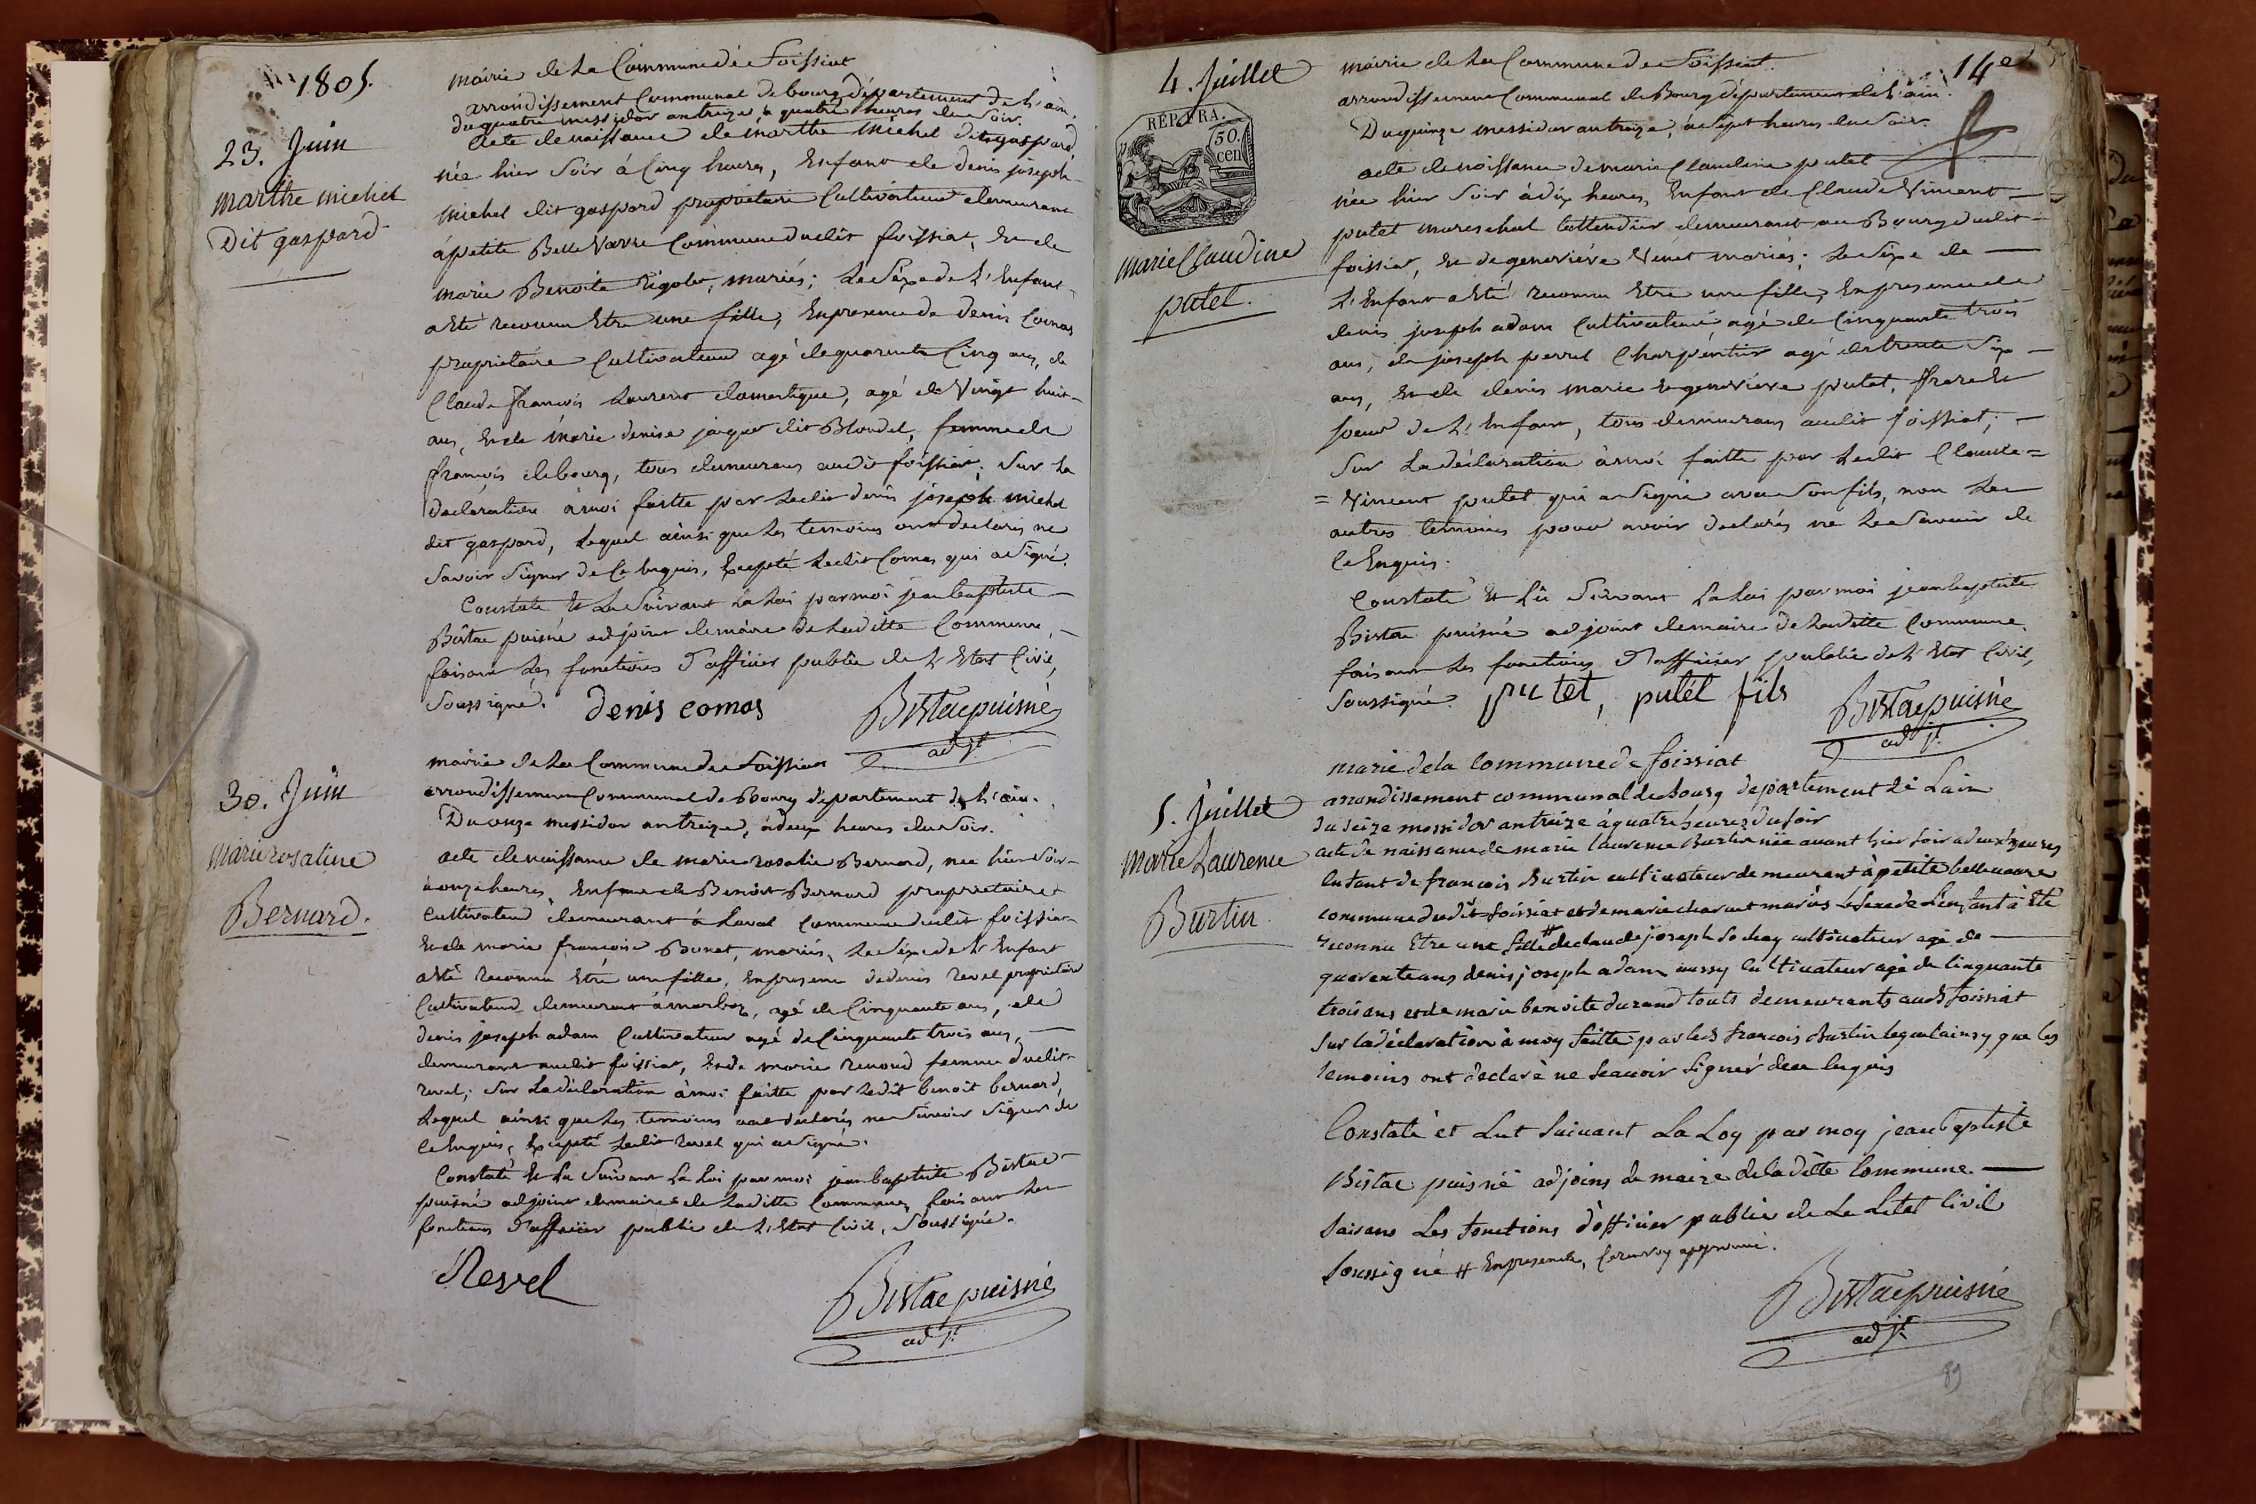 1805.
mairie de La Commune de Foissiat
arrondissement Communal de bourg département de L'ain.
du quatre messidor an treize, à quatre heures du Soir.
23. Juin
marthe michel
Dit gaspard
Acte de naissance de marthe Michel dit gaspard
née hier Soir à Cinq heures, Enfant de denis joseph
Michel dit gaspard propriétaire Cultivateur demeurant
à petite Belle Vavre Commune dudit foissiat, Et de
marie Benoite Rigolet, mariés; Le Séxe de L'Enfant
a Eté reconnu Etre une fille, En presence de denis Comas
propriétaire Cultivateur agé de quarente Cinq ans, de
Claude françois Laurent domestique, agé de Vingt huit
ans, Et de marie denise jaquet dit Blondel, femme de
françois debourg, tous demeurans audit foissiat. Sur La
declaration à moi faitte par Ledit denis joseph michel
dit gaspard, Lequel ainsi que Les temoins ont declarés ne
Savoir Signer de Ce Enquis, Excepté Ledit Comas qui a Signé.
Constaté Et Lu Suivant La Loi par moi jean baptiste
Bistac puisné adjoint de maire de Laditte Commune,
faisant Les fonctions D'officier public de L'Etat Civil,
Soussigné. denis comas
Bistac puisné
adjt
30. Juin
marie rosaline
Bernard.
mairie de La Commune de Foissiat
arrondissement Communal de Bourg département de L'ain.
Du onze messidor an treize, à deux heures du Soir.
acte de naissance de marie rosalie Bernard, née hier Soir
à onze heures, Enfant de Benoit Bernard propriétaire
Cultivateur demeurant à Laval Commune dudit foissiat
Et de marie françoise Bonet, mariés, Le Séxe de L'Enfant
a Eté reconnu Etre une fille, En presence de denis revel propriétaire
Cultivateur demeurant à marboz, agé de Cinquante ans, de
denis joseph adam Cultivateur agé de Cinquante trois ans,
demeurant audit foissiat, Et de marie renoud femme dudit
revel; Sur La declaration à moi faitte par Ledit benoit bernard,
Lequel ainsi que Les temoins ont declarés ne Savoir Signer de
Ce Enquis, Excepté Ledit revel qui a Signé.
Constaté Et Lu Suivant La Loi par moi jean baptiste Bistac
puisné adjoint de maire de Laditte Commune, faisant Les
fonctions D'officier public de L'Etat Civil, Soussigné.
Revel
Bistac puisné
adjt
14e
4. Juillet
RÉP. FRA.
50
cen
Marie Claudine
putet.
mairie de La Commune de Foissiat
arrondissement Communal de Bourg département de L'ain.
Du quinze messidor an treize, à Sept heures du Soir.
acte de naissance de marie Claudine putet
née hier Soir à dix heures, Enfant de Claude Vincent
putet mareschal demeurant au Bourg dudit
foissiat, Et de geneviéve Venet mariés; Le Séxe de
L'Enfant a Eté reconnu Etre une fille, En presence de
denis joseph adam Cultivateur agé de Cinquante trois
ans, de joseph perret Charpentier agé de trente Six
ans, Et de denis marie Et geneviéve putet, frere Et
Soeur de L'Enfant, tous demeurans audit foissiat;
Sur La declaration à moi faitte par Ledit Claude=
=Vincent putet qui a Signé avec Son fils, non Les
autres temoins pour avoir declarés ne Le Savoir de
Ce Enquis.
Constaté Et Lû Suivant La Loi par moi jean baptiste
Bistac puisné adjoint de maire de Laditte Commune,
faisant Les fonctions D'officier public de L'Etat Civil,
Soussigné. putet, putet fils
Bistac puisné
adjt
5. Juillet
Marie Laurence
Burtin
marie de la Commune de foissiat
arrondissement communal de bourg departement de Lain
du seize messidor an treize a quatre heures du soir
acte de naissance de marie laurence Burtin née avant hier soir a deux heures
Enfant de francois Burtin cultivateur demeurant à petite belle vavre
commune dudit foissiat et de marie mariés Le Sexe de L'enfant à Eté
reconnu Etre une fille # de claude joseph Sochay cultivateur agé de
quarente ans denis joseph adam aussy Cultivateur agé de Cinquante
trois ans et de marie benoite durand touts demeurants aud foissiat
Sur la déclaration à moy faitte par led francois Burtin lequel ainsy que les
temoins ont declaré ne Scavoir Signér de ce Enquis
Constaté et Lut Suivant La Loy par moy jean baptiste
Bistac puisné adjoins de maire de la ditte Commune
faisans Les fonctions d'officier public de Le Létet Civil
Soussigné # En presence, renvoy approuvé.
Bistac puisné
adjt
89